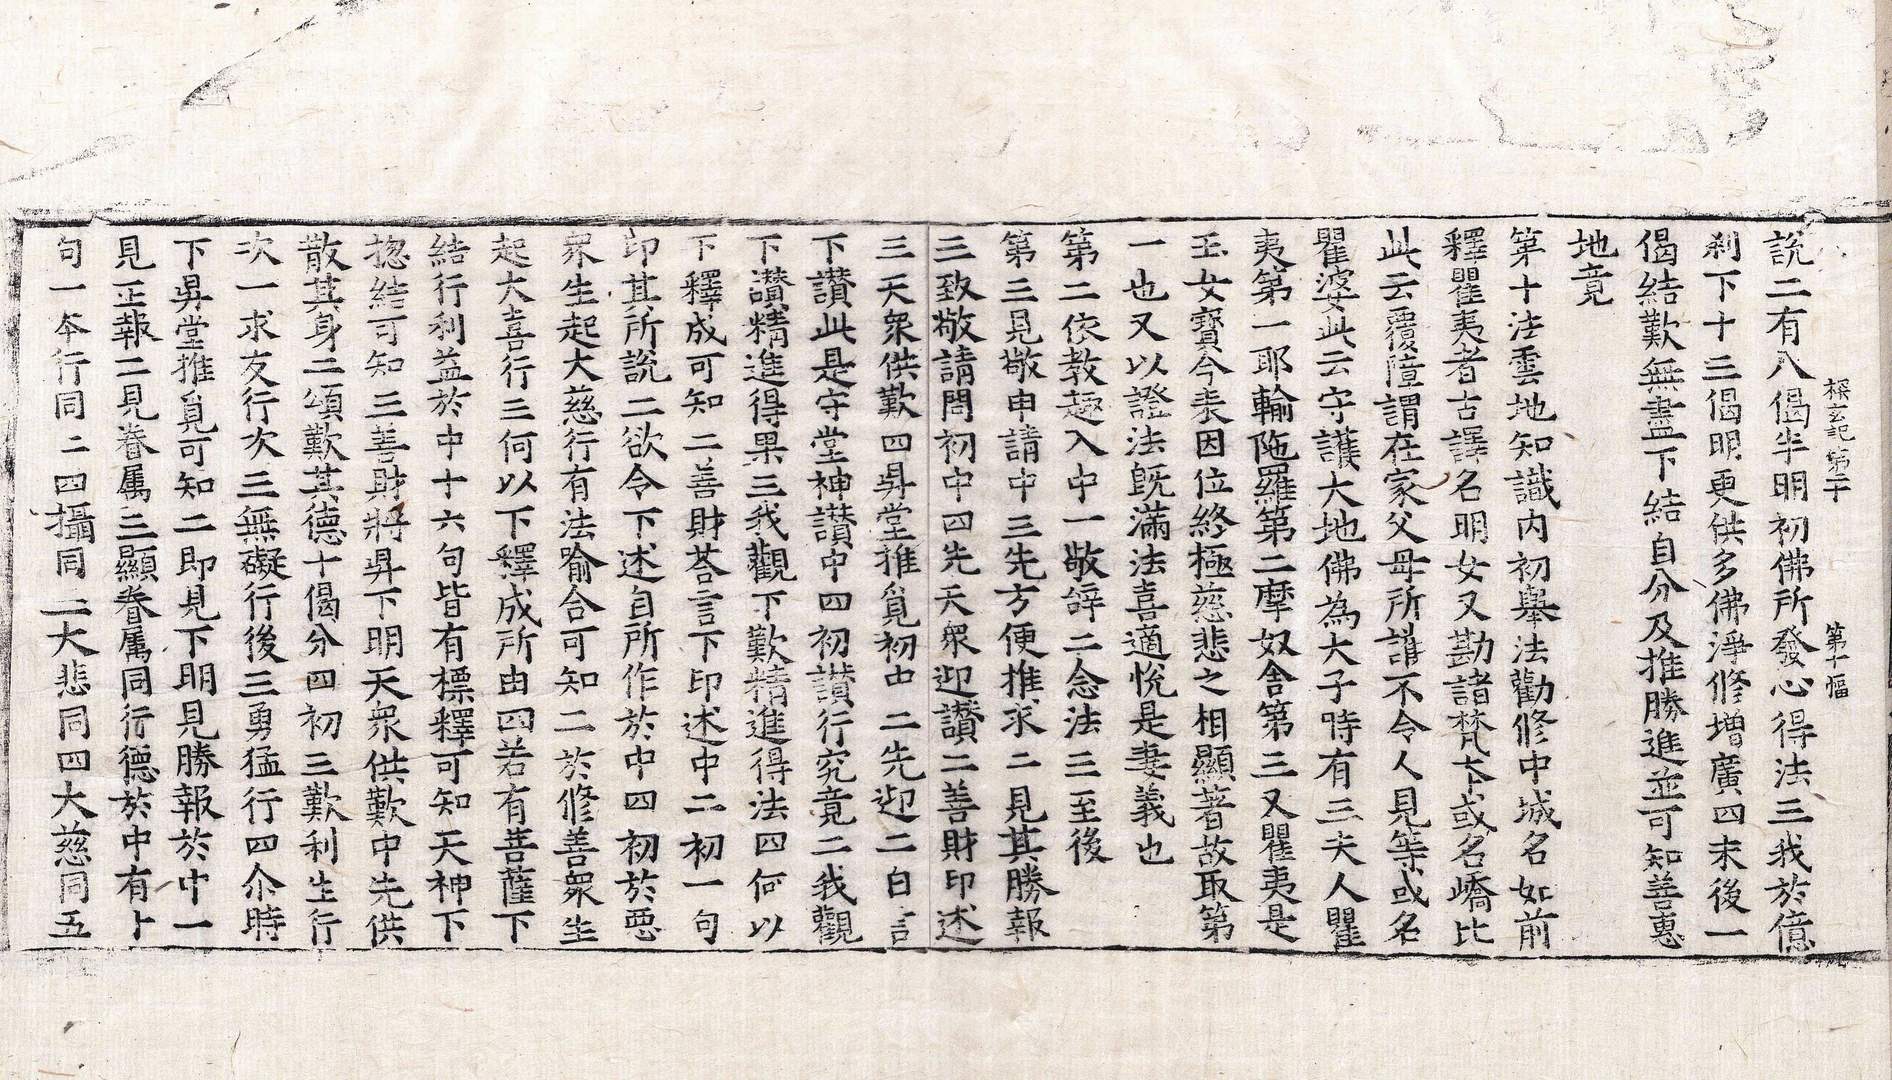 探玄記第二十 第十幅
說二有八偈半明初佛所發心得法三我於億
刹下十三偈明更供多佛淨修增廣四末後一
偈結歎無盡下結自分及推勝進並可知善惠
地竟
第十法雲地知識內初舉法勸修中城名如前
釋瞿夷者古譯名明女又勘諸梵本或名嶠比
此云覆障謂在家父母所護不令人見等或名
瞿婆此云守護大地佛為大子時有三夫人瞿
夷第一耶輸陁羅第二摩奴舍第三又瞿夷是
玉女寶今表因位終極慈悲之相顯著故取第
一也又以證法旣滿法喜適悅是妻義也
第二依教趣入中一敬辝二念法三至後
第三見敬申請中三先方便推求二見其勝報
三致敬請問初中四先天衆迎讃二善財印述
三天衆供歎四昇堂推覓初中二先迎二白言
下讃此是守堂神讃中四初讃行究竟二我觀
下讃精進得果三我觀下歎精進得法四何以
下釋成可知二善財荅言下印述中二初一句
印其所說二欲令下述自所作於中四初於惡
衆生起大慈行有法喻合可知二於修善衆生
起大喜行三何以下釋成所由四若有菩薩下
結行利益於中十六句皆有標釋可知天神下
揔結可知三善財將昇下明天衆供歎中先供
散其身二頌歎其德十偈分四初三歎利生行
次一求友行次三無礙行後三勇猛行四尒時
下昇堂推覓可知二即見下明見勝報於中一
見正報二見眷属三顯眷属同行德於中有十
句一本行同二四攝同三大悲同四大慈同五